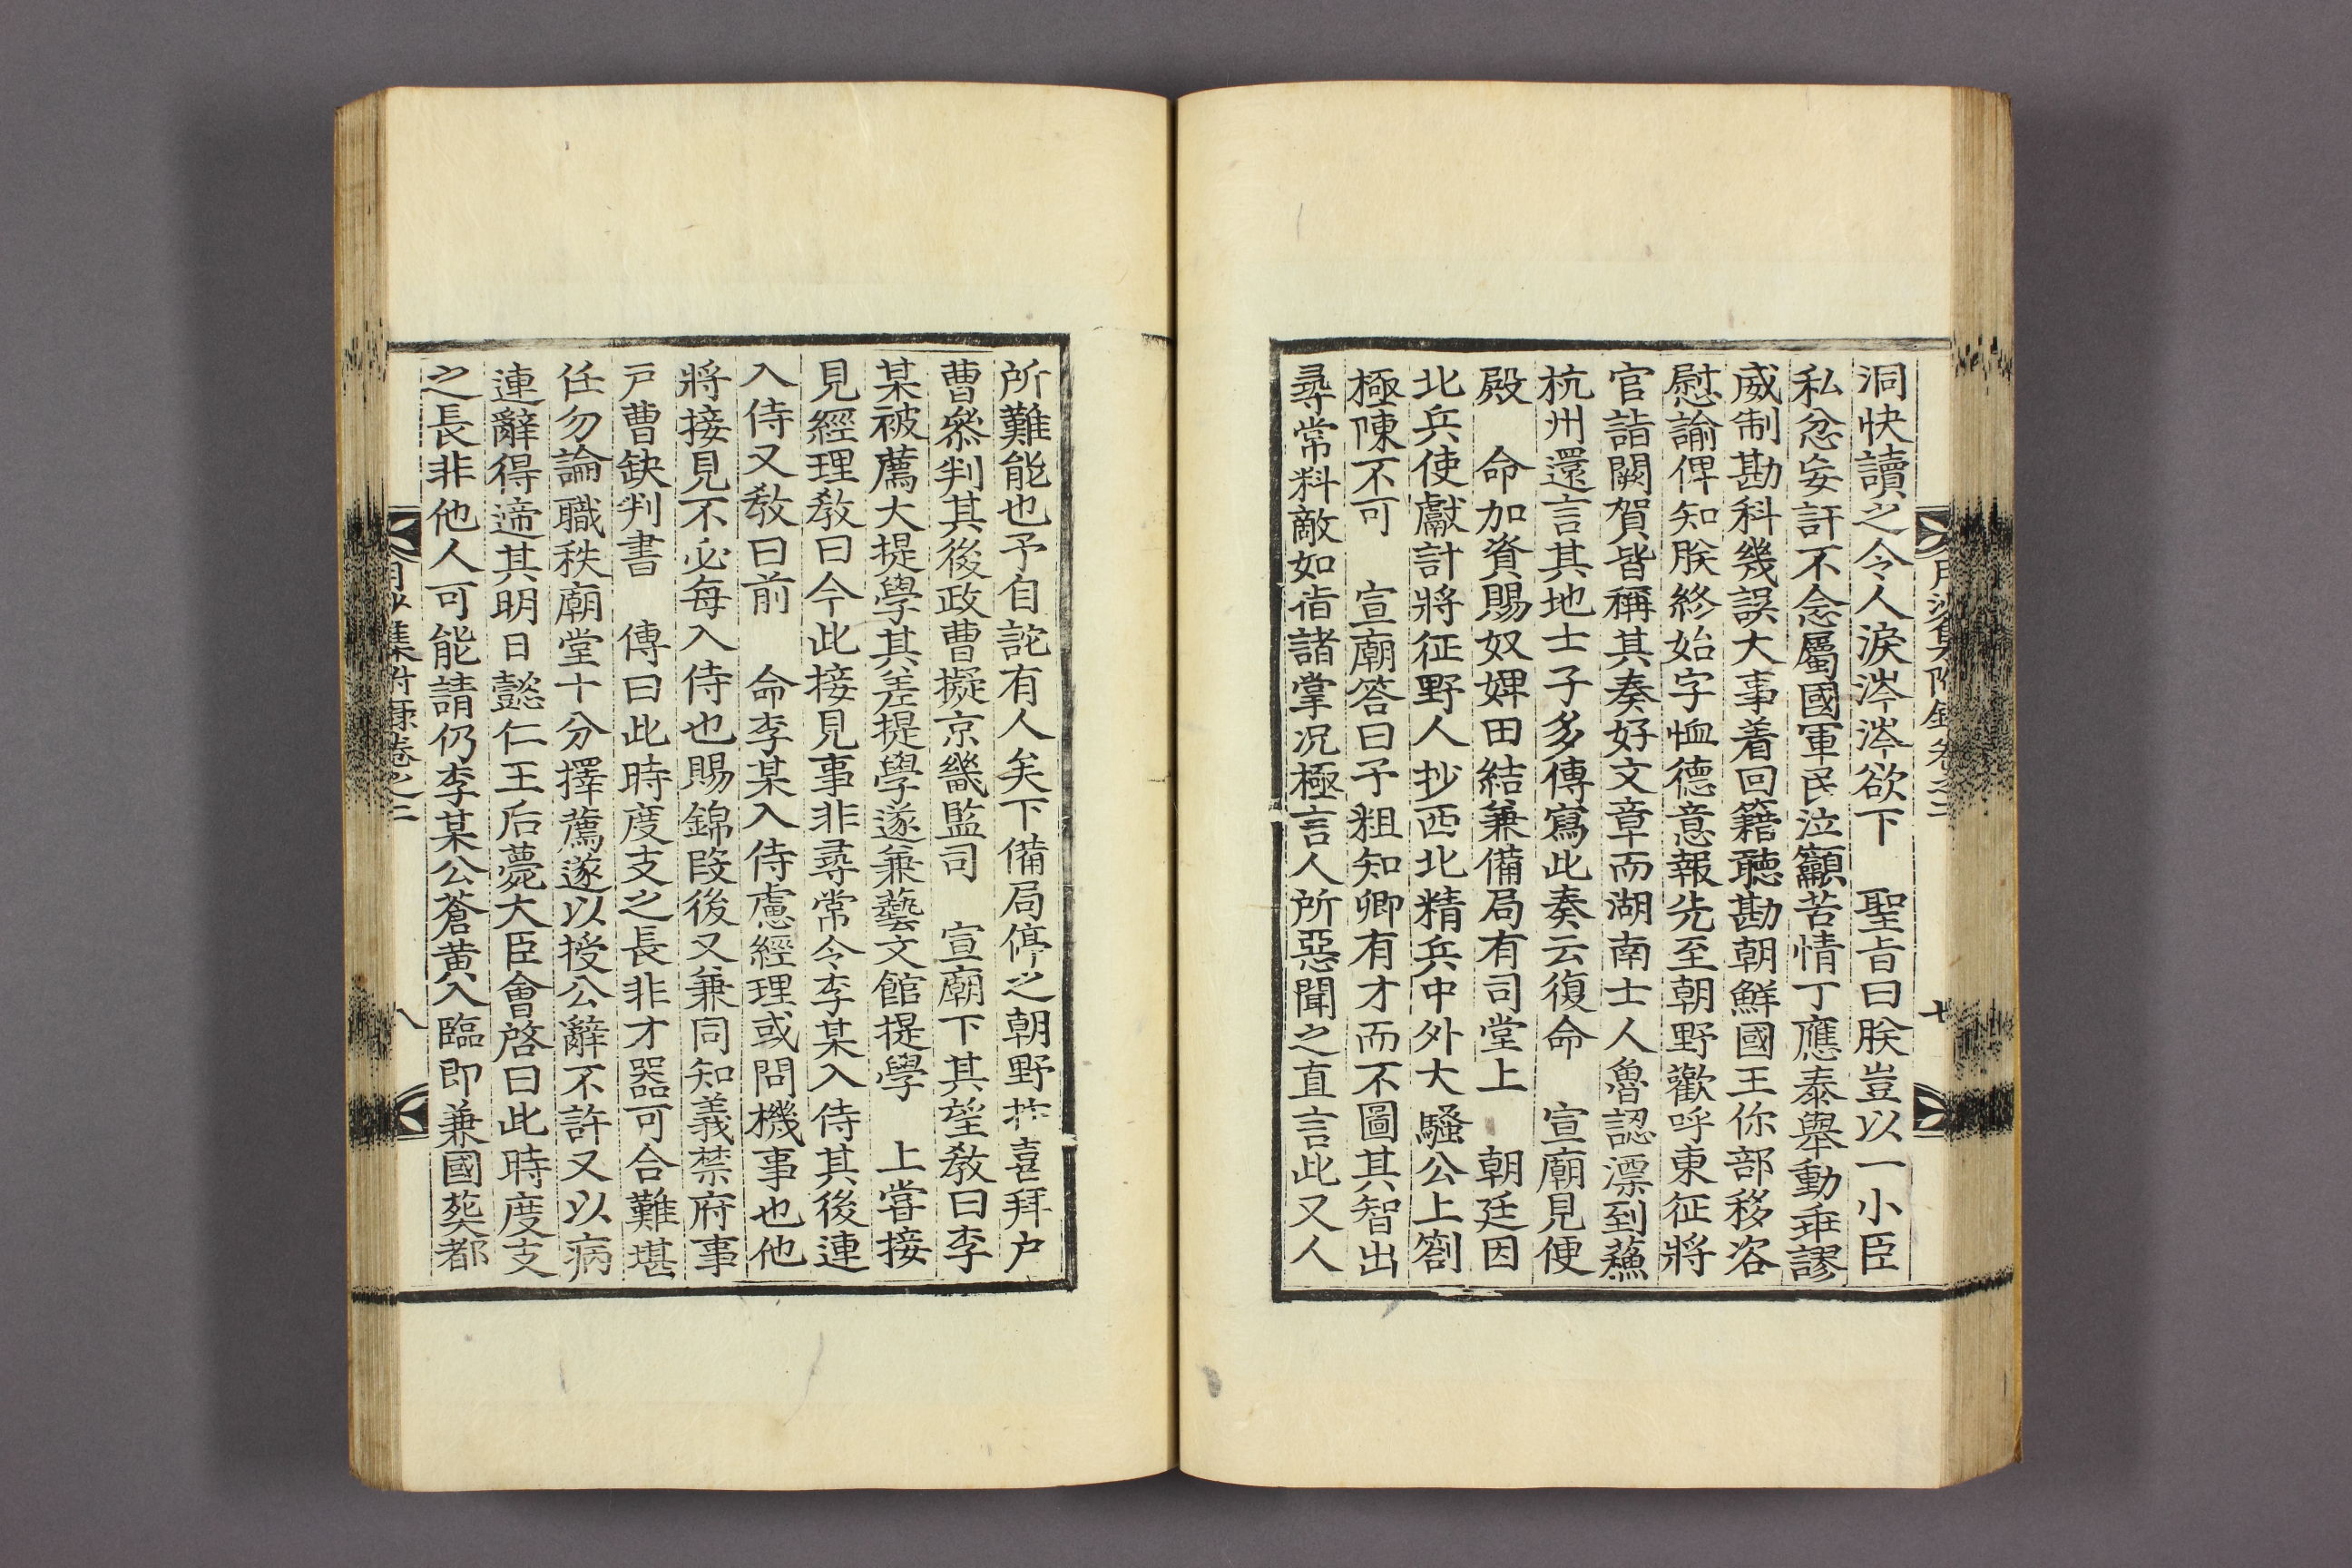 洞快讀之令人淚涔涔欲下 聖旨曰朕豈以一小臣
私忿妄訐不念屬國軍民泣籲苦情丁應泰擧動乖謬
威制勘科幾誤大事着回籍聽勘朝鮮國王你部移咨
慰諭俾知朕終始字恤德意報先至朝野歡呼東征將
官詣闕賀皆稱其奏好文章而湖南士人魯認漂到蘓
杭州還言其地士子多傳寫此奏云復命 宣廟見便
殿 命加資賜奴婢田結兼備局有司堂上 朝廷因
北兵使獻計將征野人抄西北精兵中外大騷公上劄
極陳不可 宣廟答曰予粗知卿有才而不圖其智出
尋常料敵如指諸掌况極言人所惡聞之直言此又人
所難能也予自詑有人矣下備局停之朝野抃喜拜户
曹叅判其後政曹擬京畿監司 宣廟下其望敎曰李
某被薦大提學其差提學遂兼藝文館提學 上嘗接
見經理敎曰今此接見事非尋常令李某入侍其後連
入侍又敎曰前 命李某入侍慮經理或問機事也他
將接見不必每入侍也賜錦段後又兼同知義禁府事
戶曹缺判書 傳曰此時度支之長非才器可合難堪
任勿論職秩廟堂十分擇薦遂以授公辭不許又以病
連辭得遞其明日懿仁王后薨大臣會啓曰此時度支
之長非他人可能請仍李某公蒼黃入臨即兼國葬都
月沙集附錄卷之二
七
集附錄卷之二
八